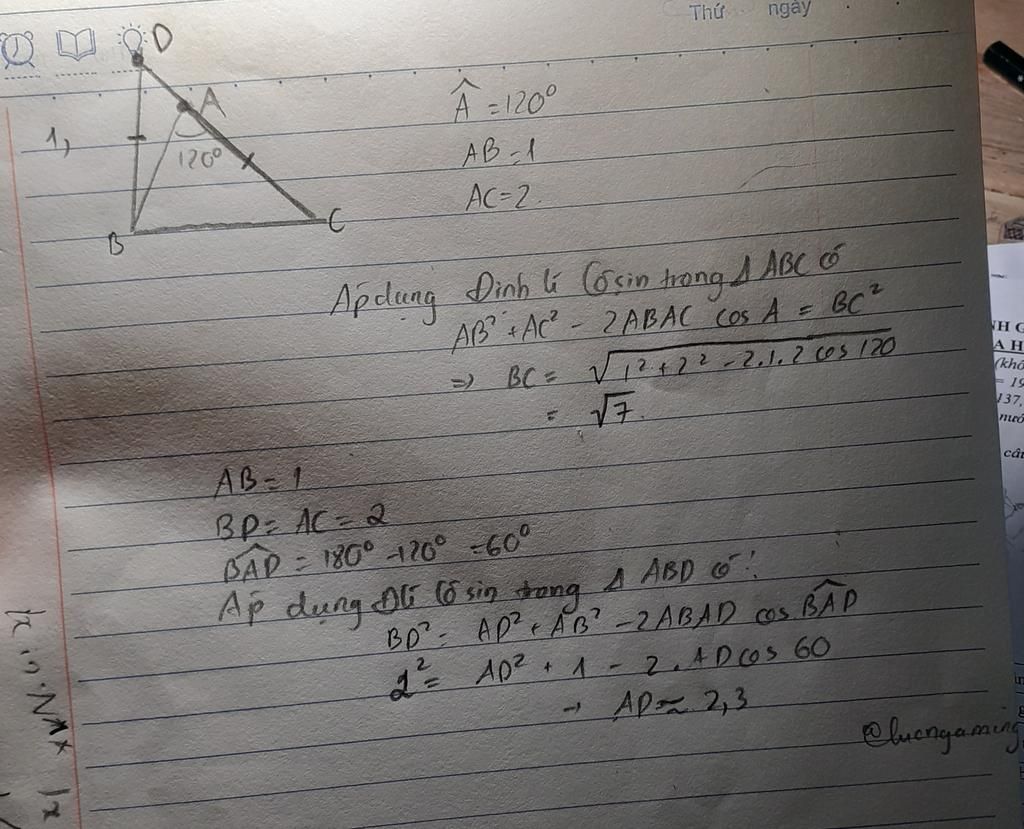 Thứ ngày
D
A
1,
120°
B
C
Â = 120°
AB = 1
AC = 2.
Áp dụng Định lí Côsin trong Δ ABC có
AB² + AC² - 2ABAC cos A = BC²
=> BC = √1² + 2² - 2.1.2 cos 120
= √7.
AB = 1
BD = AC = 2
BAD = 180° - 120° = 60°
Áp dụng Đlí Côsin trong Δ ABD có:
BD² = AD² + AB² - 2ABAD cos BAD
2² = AD² + 1 - 2.AD cos 60
→ AD ≈ 2,3
@luongaming
H G
A H
(khô
= 19
137,
nướ
câu